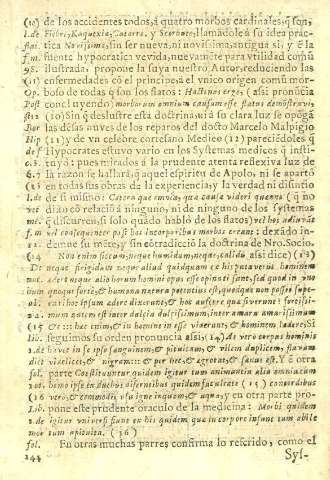 (10) de los accidentes todos, à quatro morbos cardinales, q̃ son,
l. de Fiebre, Kaquexia, Catarro, y Scorbuto, llamãdole à su idea prác-
flat. tica Novissima, sin ser nueva, ni novissima, antigua si; y è la
fm. fuente hypocratica vevida, nuevamẽte para vtilidad comũ
98. ilustrada, propone la suya nuestro Autor, reduciendo las
(11) enfermedades cõ el principe, à el vnico origen comũ mor-
Op. boso de todas q̃ son los flatos: Hactenus ergo, (assi pronũcia
Post concluyendo) morborum omnium causam esse flatus demõstravi,
sts: 1 (10) Sin q̃ deslustre esta doctrina, ni à su clara luz se oponga
Bor las dẽsas nuves de los reparos del docto Marcelo Malpigio
Hip (11) y de vn celebre cortesano Medico (12) pareciẽdoles q̃
de f Hypocrates estuvo vario en los Systemas medicos q̃ insti-
c.3. tuyò: pues mirados à la prudente atenta reflexiva luz de
6.7 la razon se hallarà, q̃ aquel espiritu de Apolo, ni se apartò
(13 en todas sus obras de la experiencia, y la verdad ni disintio
l. de de si mismo: Catera que omnia, que causa videri queunt (q̃ no
vet diã o cõ relaciõ à ninguno, ni de ninguno de los systemas
me. q̃ discurren, si solo quãdo hablò de los flatos) vel hos adiuvãt
f. m vel consequenter post hos incorporibus morbos creant: dexãdo in-
12. demne su mẽte, y sin cõtradicciõ la doctrina de Nro. Socio.
(14 Non enim siccum, neque humidum, neque, calidũ, assi dice) (13)
De neque frigidum neque aliud quidquam ex his putaverũt hominem
nat. adere neque alio horum homini opus esse opinati sunt, sed quod in
bum quoque forte, & humana natura potentius est, quodque non possit supe-
 aribec ipsum adere dixerunt, & hoc auferre qua siverunt: fortisi-
mum autem est inter dulcia dulcissimum, inter amara amarissimum
(15 & ::: hac enim, & in homine in esse viderunt, & hominem ladere, Si
lib. seguimos su orden pronuciã assi, (14) At vero corpus hominis
 de b habet in se ipso sanguinem, & pituitam, & vilem duplicem, flavam
dict videlicet, & nigram: & per hec, & agrotat, & sanus est, Y è otra
fol. parte Coestituuntur quidem igitur tum animantia alia omnia tum
100. bomo ipse in duobus disernibus quidem facultate (15) concordibus
(16 vero, & commodis usu igne inquem, & aqua, y en otra parte pro-
Lib. pone este prudente oraculo de la medicina: Morbi quidem
2. de igitur vniversi fiunt ex his quidem que incorpore insunt tum abile
mor tum apituita, (16)
fol. En otras muchas partes confirma lo referido, como el
244 Sys-